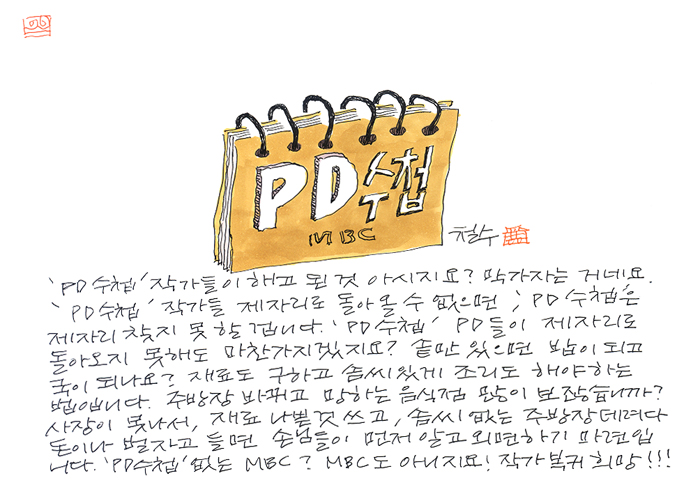 PD수첩
MBC
철수
'PD수첩' 작가들이 해고 된 것 아시지요? 막가자는 거네요.
'PD수첩' 작가들 제자리로 돌아올 수 없으면, 'PD수첩'은
제자리 찾지 못 할 겁니다. 'PD수첩' PD들이 제자리로
돌아오지 못해도 마찬가지겠지요? 솥만 있으면 밥이 되고
국이 되나요? 재료도 구하고 솜씨있게 조리도 해야하는
법입니다. 주방장 바뀌고 망하는 음식점 많이 보잖습니까?
사장이 못나서, 재료 나쁜것 쓰고, 솜씨 없는 주방장데려다
돈이나 벌자고 들면 손님들이 먼저 알고 외면하기 마련입
니다. 'PD수첩' 없는 MBC? MBC도 아니지요! 작가복귀 희망!!!